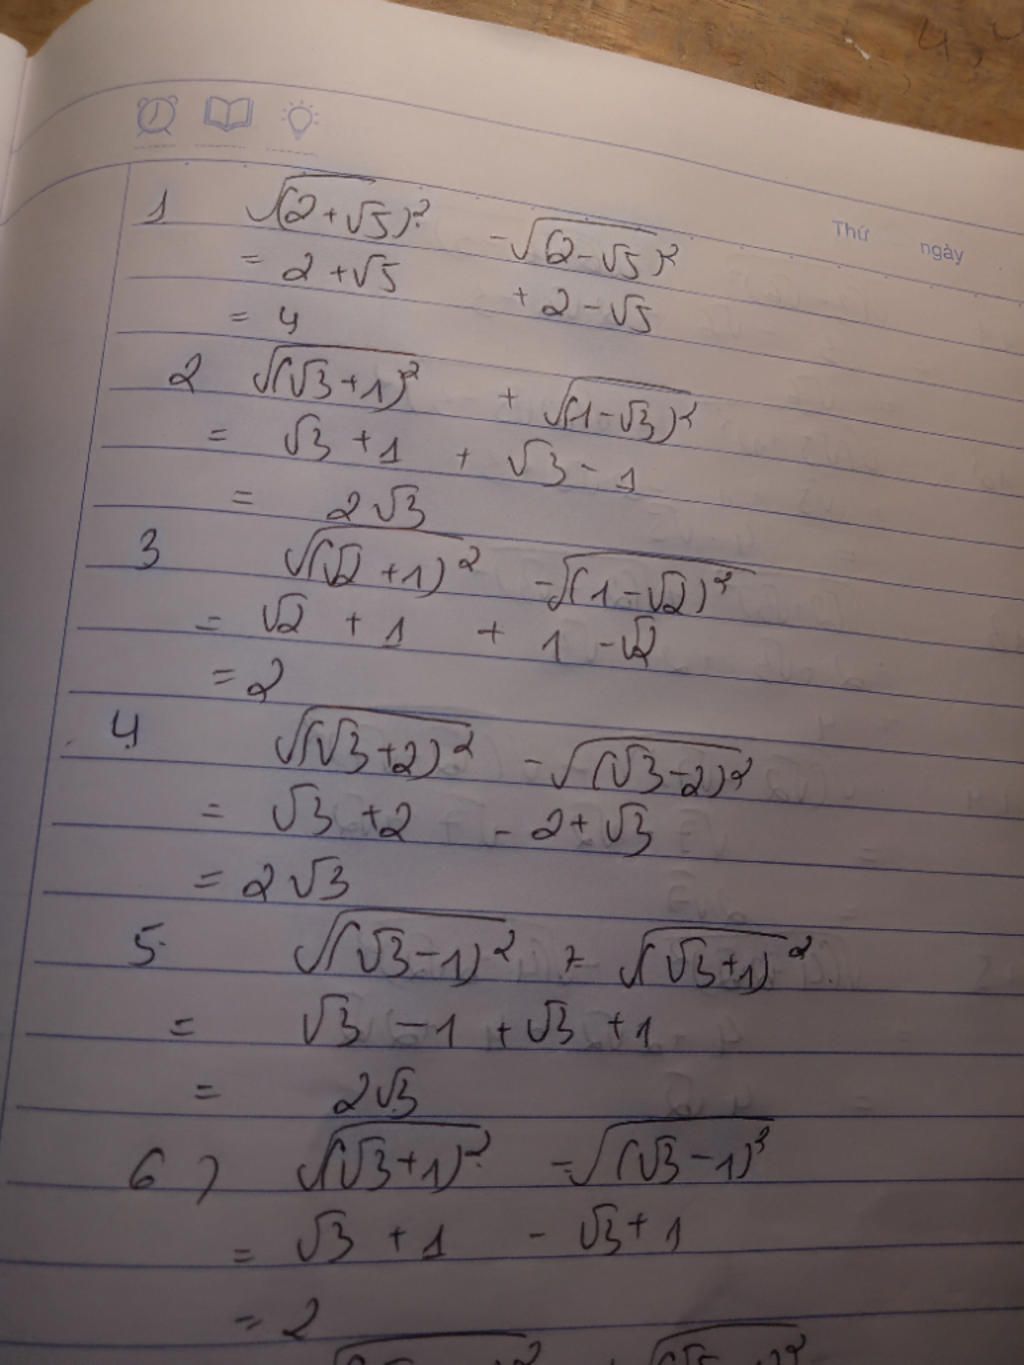 Thứ ngày
1 √(2+√5)² - √(2-√5)²
= 2+√5 + 2-√5
= 4
2 √(√3+1)² + √(1-√3)²
= √3+1 + √3-1
= 2√3
3 √(√2+1)² - √(1-√2)²
= √2+1 + 1-√2
= 2
4 √(√3+2)² - √(√3-2)²
= √3+2 - 2+√3
= 2√3
5. √(√3-1)² + √(√3+1)²
= √3-1+√3+1
= 2√3
6) √(√3+1)² - √(√3-1)²
= √3+1 - √3+1
= 2